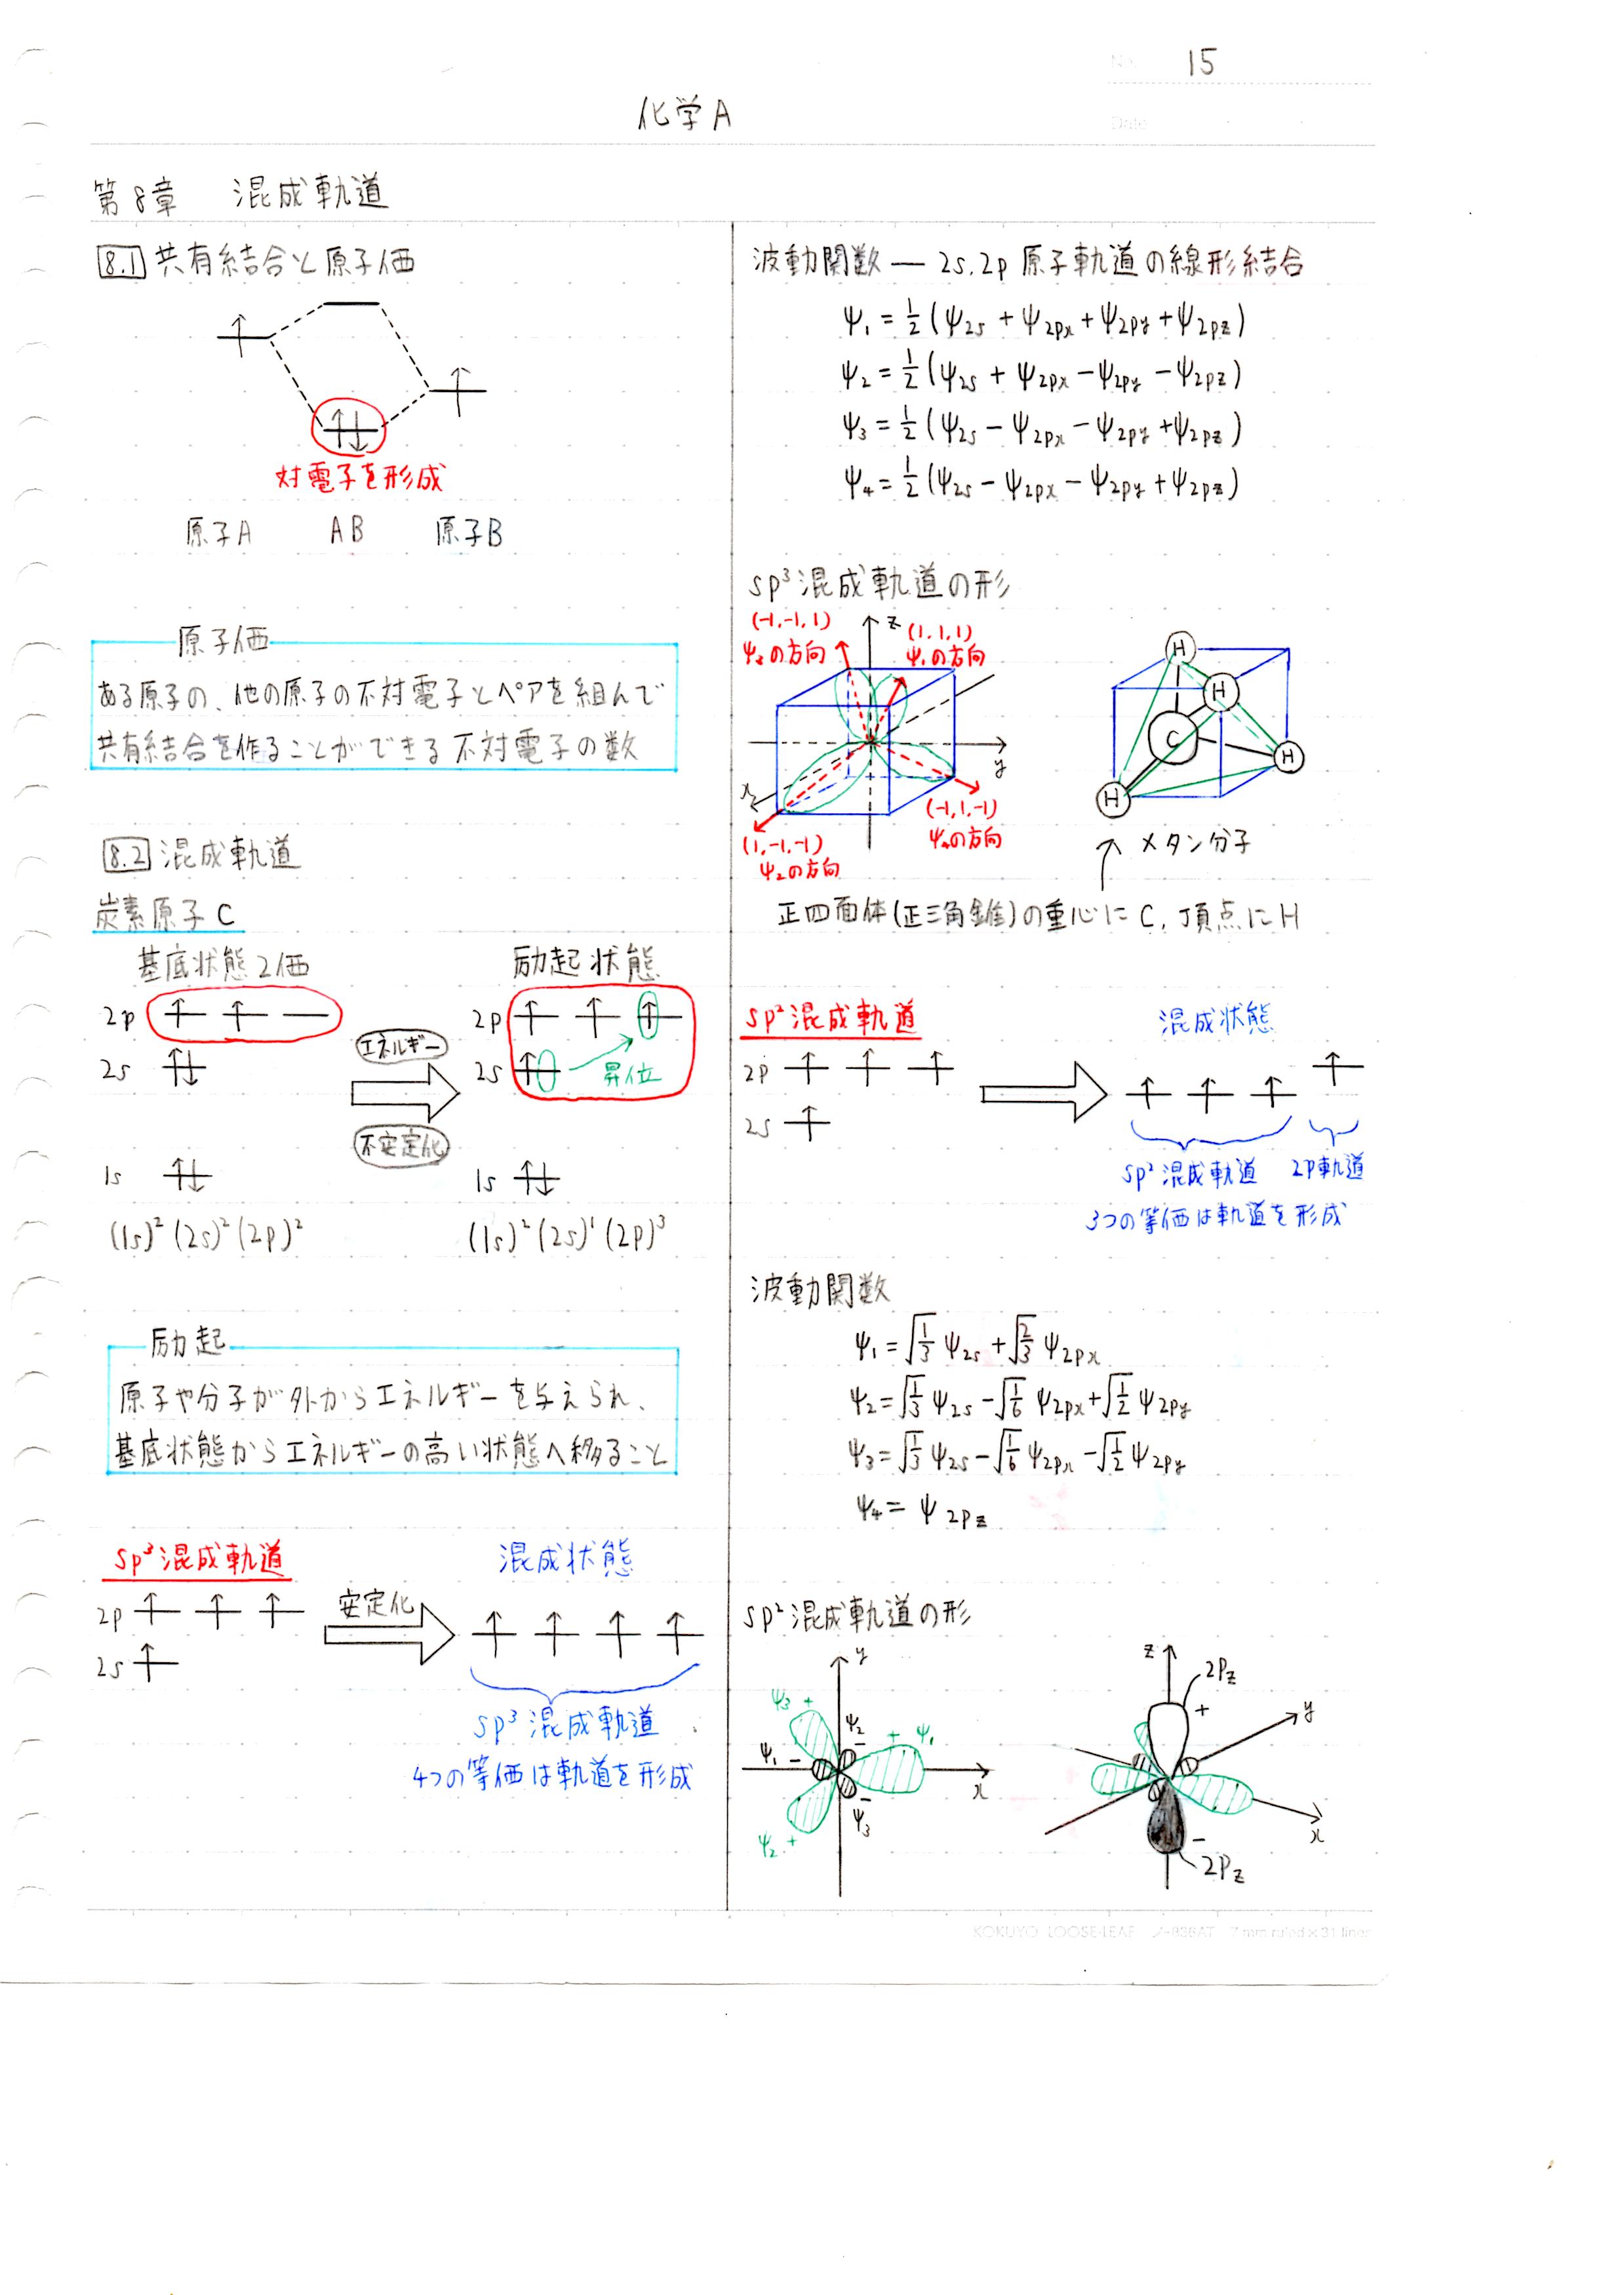 No. 15
Date
化学A
第8章 混成軌道
8.1 共有結合と原子価
対電子を形成
原子A AB 原子B
原子価
ある原子の、他の原子の不対電子とペアを組んで
共有結合を作ることができる不対電子の数
8.2 混成軌道
炭素原子C
基底状態2価 励起状態
2p 2p
エネルギー
2s 2s 昇位
不安定化
1s 1s
(1s)²(2s)²(2p)² (1s)²(2s)¹(2p)³
励起
原子や分子が外からエネルギーを与えられ、
基底状態からエネルギーの高い状態へ移ること
sp³混成軌道 混成状態
2p 安定化
2s
sp³混成軌道
4つの等価は軌道を形成
波動関数 — 2s, 2p原子軌道の線形結合
ψ₁ = 1/2 (ψ2s + ψ2px + ψ2py + ψ2pz)
ψ₂ = 1/2 (ψ2s + ψ2px − ψ2py − ψ2pz)
ψ₃ = 1/2 (ψ2s − ψ2px − ψ2py + ψ2pz)
ψ₄ = 1/2 (ψ2s − ψ2px − ψ2py + ψ2pz)
sp³混成軌道の形
(-1,-1,1) z (1,1,1)
ψ₃の方向 ψ₁の方向
y
x
(-1,1,-1)
ψ₄の方向
(1,-1,-1)
ψ₂の方向
H
H
C
H
H
メタン分子
正四面体(正三角錐)の重心にC, 頂点にH
sp²混成軌道 混成状態
2p
2s
sp²混成軌道 2p軌道
3つの等価は軌道を形成
波動関数
ψ₁ = √1/3 ψ2s + √2/3 ψ2px
ψ₂ = √1/3 ψ2s − √1/6 ψ2px + √1/2 ψ2py
ψ₃ = √1/3 ψ2s − √1/6 ψ2px − √1/2 ψ2py
ψ₄ = ψ2pz
sp²混成軌道の形
y
ψ₃ +
ψ₂ −
+ ψ₁
ψ₁ −
x
− ψ₃
ψ₂ +
z
2Pz
+
y
x
−
2Pz
KOKUYO LOOSE-LEAF ノ-836AT 7 mm ruled × 31 lines